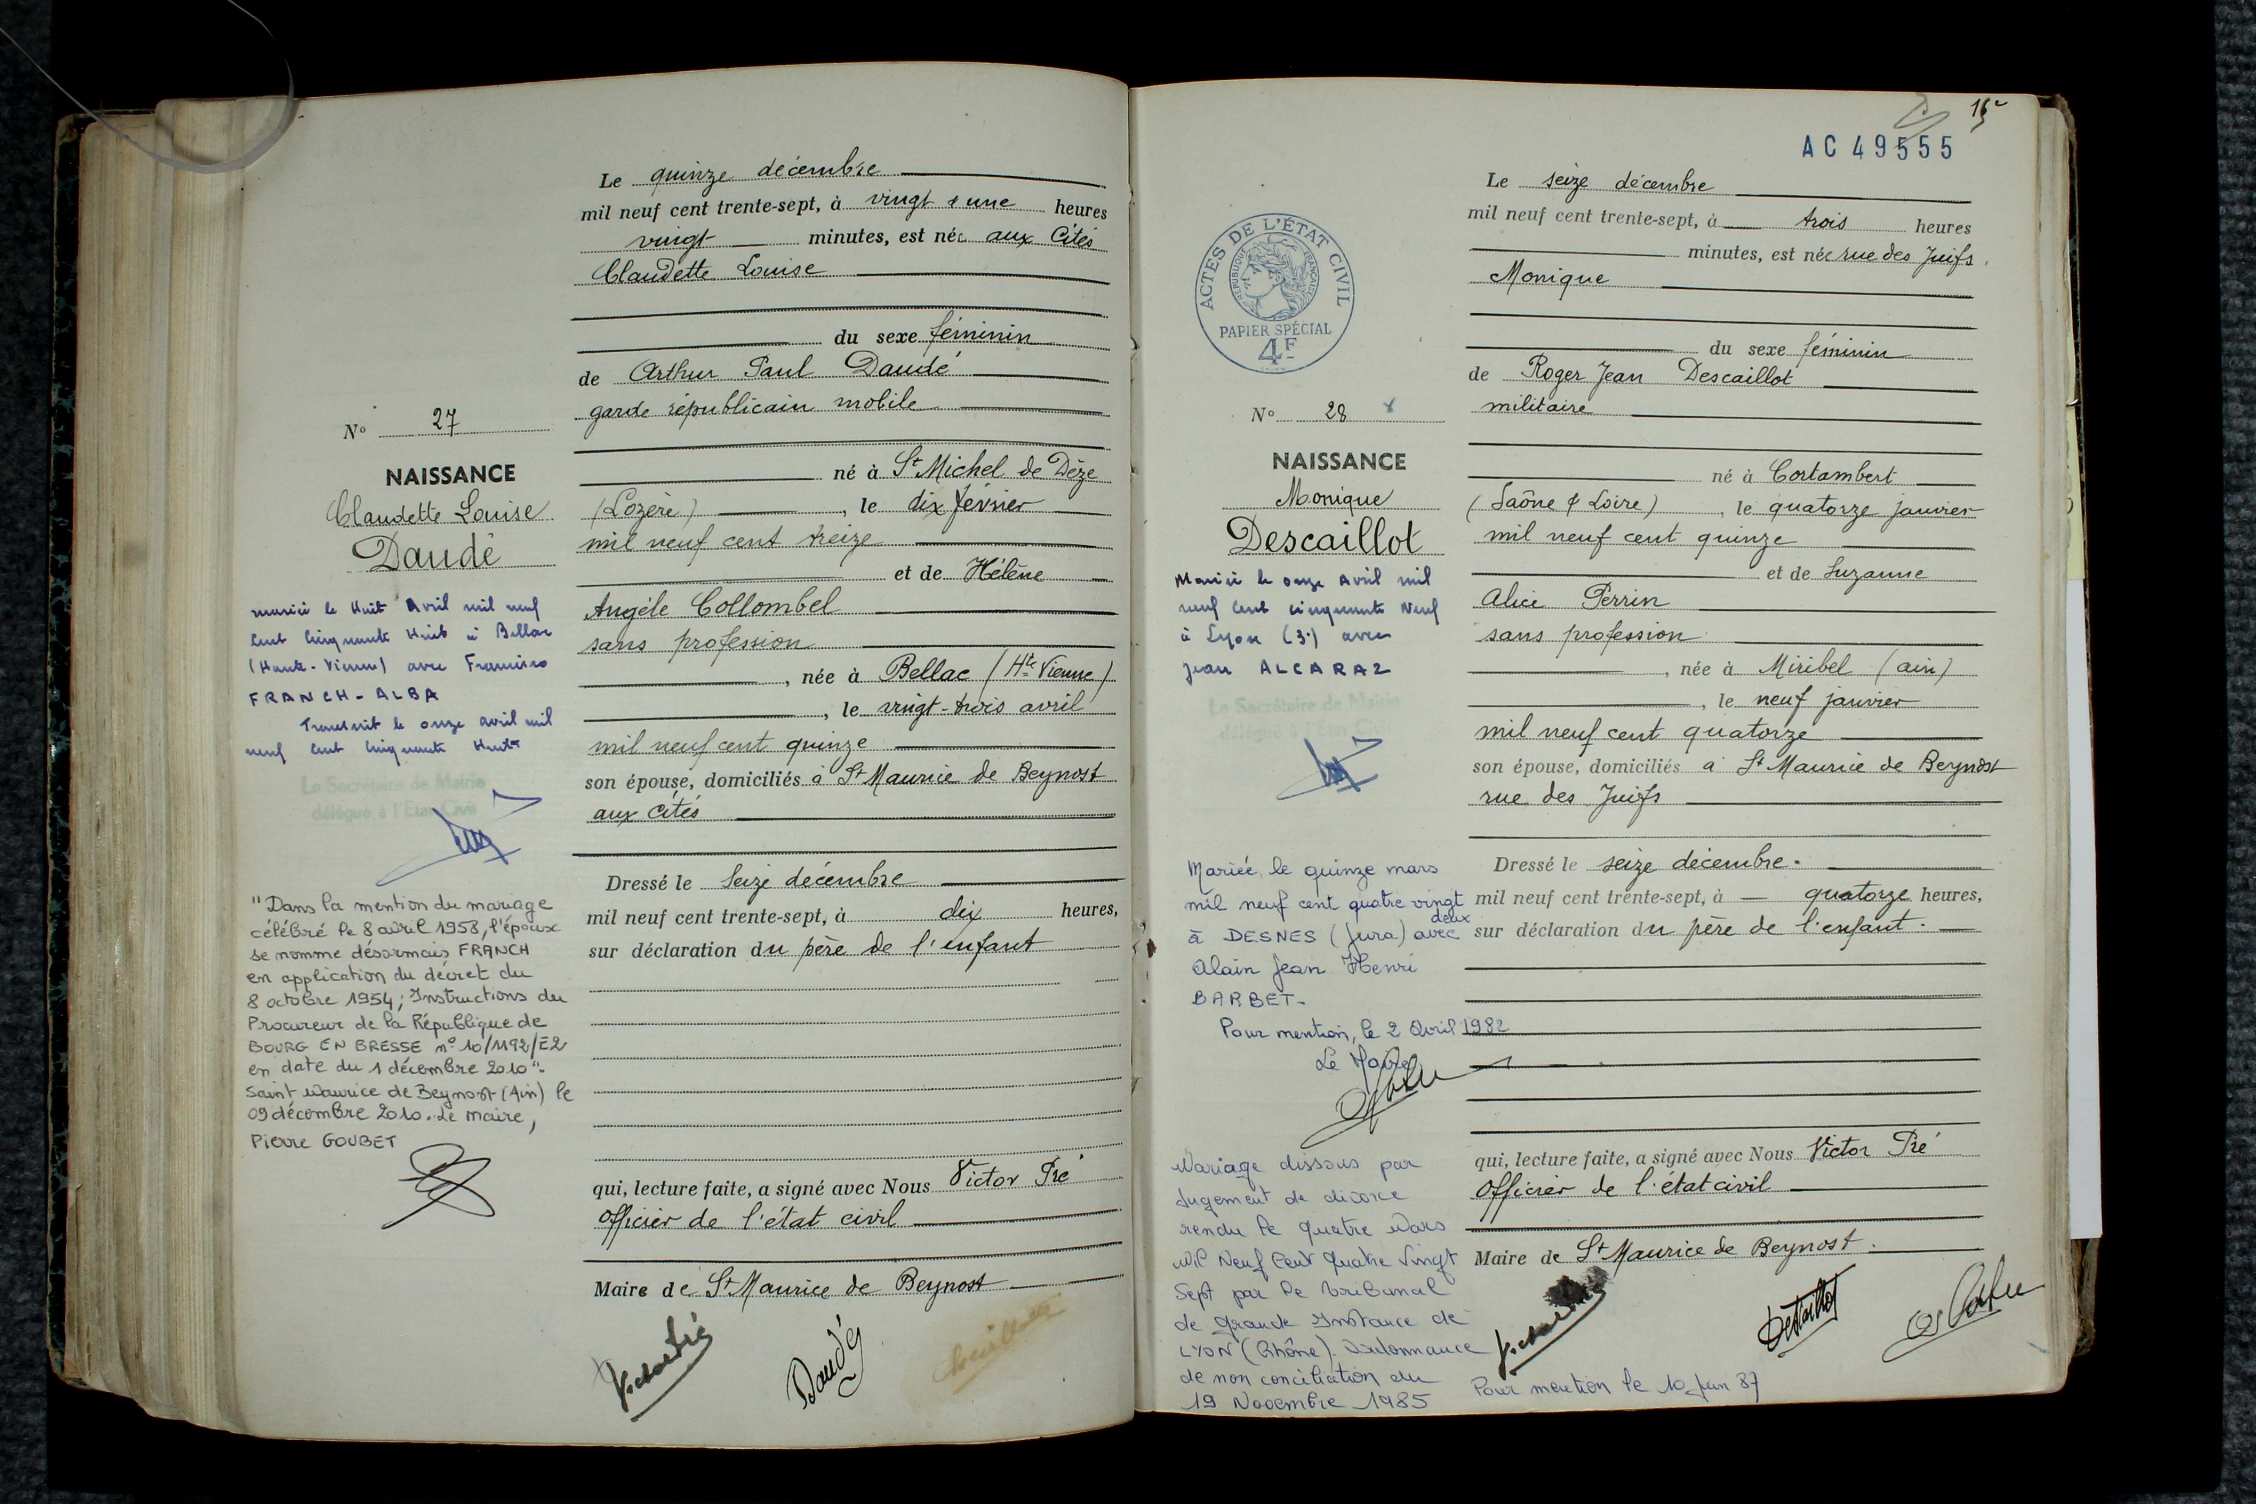 Le quinze décembre
mil neuf cent trente-sept, à vingt & une heures
vingt minutes, est née aux Cités
Claudette Louise
du sexe féminin
de Arthur Paul Daudé
garde républicain mobile
né à St Michel de Dèze
(Lozère), le dix février
mil neuf cent treize
et de Hélène
Angèle Collombel
sans profession
, née à Bellac (Hte Vienne)
, le vingt-trois avril
mil neuf cent quinze
son épouse, domiciliés à St Maurice de Beynost
aux Cités
Dressé le seize décembre
mil neuf cent trente-sept, à dix heures,
sur déclaration du père de l'enfant
qui, lecture faite, a signé avec Nous Victor Pré
Officier de l'état civil
Maire de St Maurice de Beynost
Victor Pré
Daudé
No 27
NAISSANCE
Claudette Louise
Daudé
mariée le Huit Avril mil neuf
cent cinquante Huit à Bellac
(Haute-Vienne) avec Francisco
FRANCH-ALBA
Transcrit le onze avril mil
neuf cent cinquante Huit
Le Secrétaire de Mairie
délégué à l'Etat Civil
"Dans la mention du mariage
célébré le 8 avril 1958, l'époux
se nomme désormais FRANCH
en application du décret du
8 octobre 1954; Instructions du
Procureur de la République de
BOURG EN BRESSE n° 10/1192/E2
en date du 1 décembre 2010".
Saint Maurice de Beynost (Ain) le
09 décembre 2010. Le maire,
Pierre GOUBET
AC 49555
Le seize décembre
mil neuf cent trente-sept, à trois heures
minutes, est née rue des Juifs
Monique
du sexe féminin
de Roger Jean Descaillot
militaire
né à Cortambert
(Saône & Loire), le quatorze janvier
mil neuf cent quinze
et de Suzanne
Alice Perrin
sans profession
, née à Miribel (ain)
, le neuf janvier
mil neuf cent quatorze
son épouse, domiciliés à St Maurice de Beynost
rue des Juifs
Dressé le seize décembre.
mil neuf cent trente-sept, à quatorze heures,
sur déclaration du père de l'enfant.
qui, lecture faite, a signé avec Nous Victor Pré
Officier de l'état civil
Maire de St Maurice de Beynost.
Descaillot
Pour mention le 10 Juin 87
ACTES DE L'ÉTAT CIVIL
RÉPUBLIQUE FRANÇAISE
PAPIER SPÉCIAL
4F
No 28
NAISSANCE
Monique
Descaillot
Mariée le onze Avril mil
neuf cent cinquante Neuf
à Lyon (3°) avec
Jean ALCARAZ
Le Secrétaire de Mairie
délégué à l'Etat Civil
Mariée le quinze mars
mil neuf cent quatre vingt
deux
à DESNES (Jura) avec
Alain Jean Henri
BARBET-
Pour mention, le 2 Avril 1982
Le Maire
Mariage dissous par
Jugement de divorce
rendu le quatre Mars
Mil Neuf Cent Quatre Vingt
Sept par le Tribunal
de Grande Instance de
LYON (Rhône). Ordonnance
de non conciliation du
19 Novembre 1985